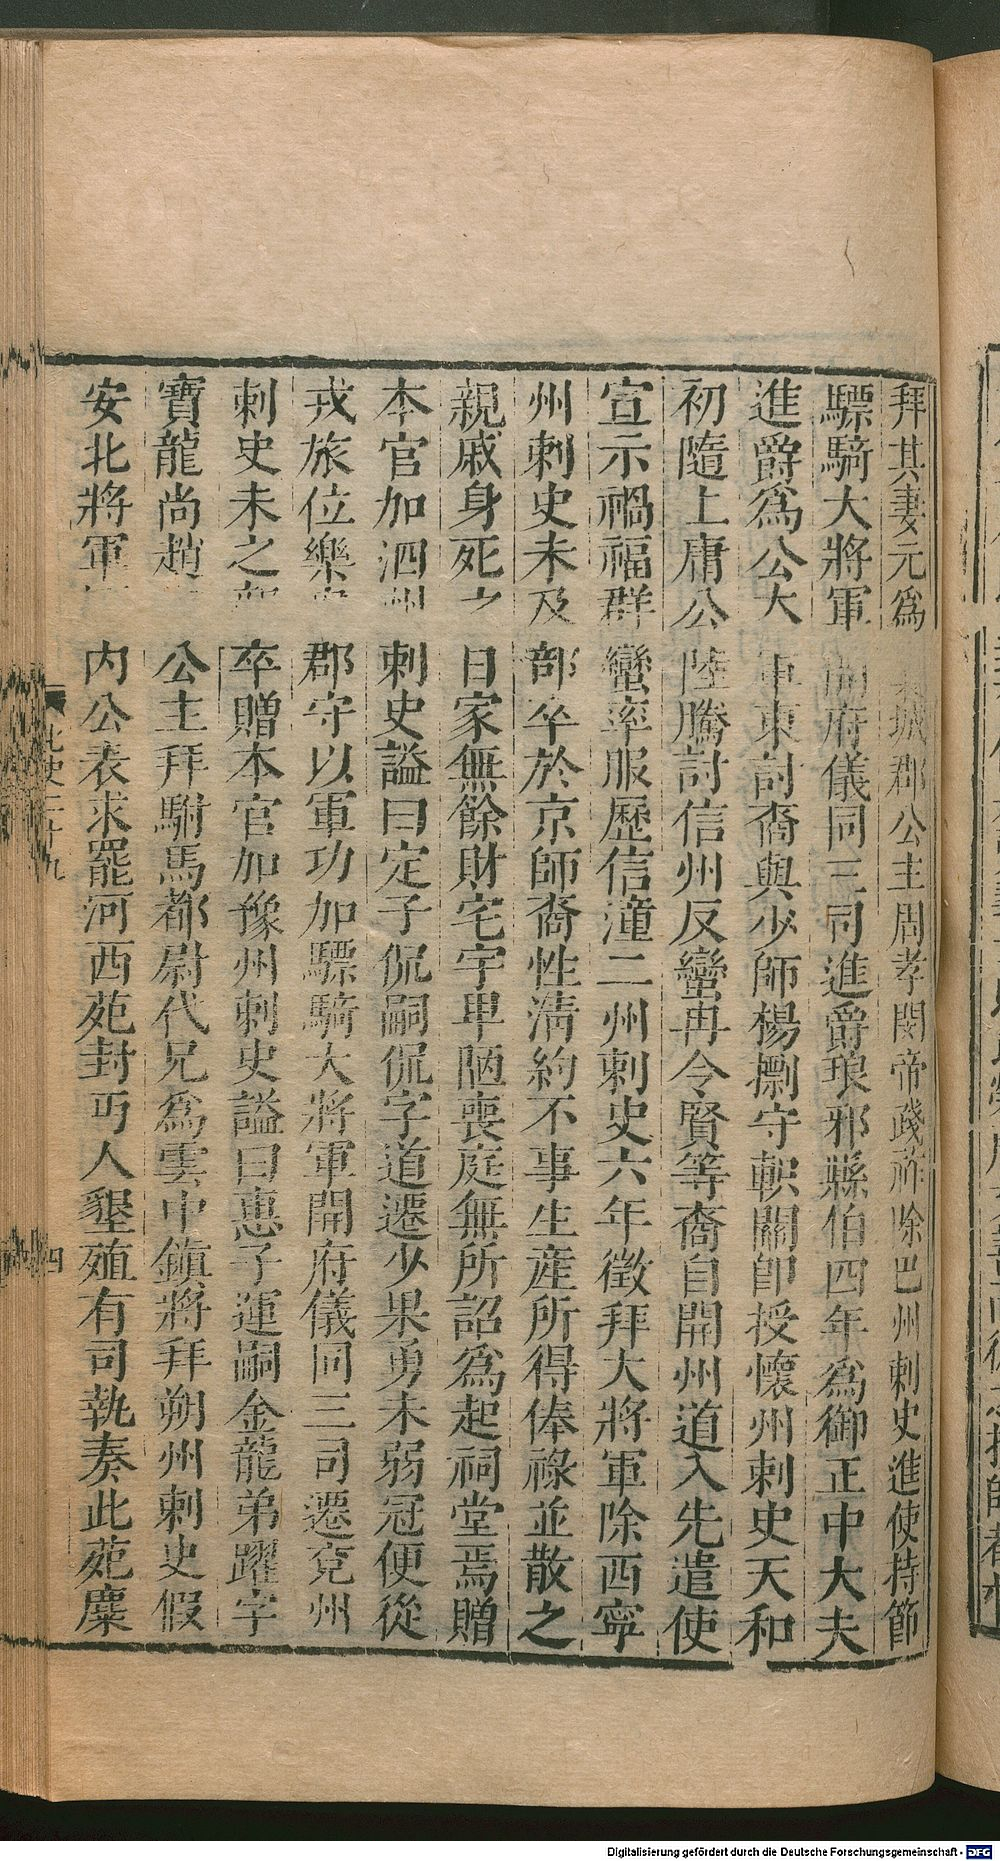 拜其妻元爲襄城郡公主周孝閔帝踐祚除巴州刺史進使持節
驃騎大將軍開府儀同三司進爵琅邪縣伯四年爲御正中大夫
進爵爲公大軍東討裔與少師楊㯹守軹關卽授懷州刺史天和
初隨上庸公陸騰討信州反蠻冉令賢等裔自開州道入先遣使
宣示禍福群蠻率服歷信潼二州刺史六年徵拜大將軍除西寧
州刺史未及部卒於京師裔性淸約不事生產所得俸祿並散之
親戚身死之日家無餘財宅宇卑陋喪庭無所詔爲起祠堂焉贈
本官加泗州刺史謚曰定子侃嗣侃字道遷少果勇未弱冠便從
戎旅位樂安郡守以軍功加驃騎大將軍開府儀同三司遷兗州
刺史未之部卒贈本官加豫州刺史謚曰惠子運嗣金龍弟躍字
寶龍尚趙 公主拜駙馬都尉代兄爲雲中鎮將拜朔州刺史假
安北將軍 內公表求罷河西苑封丐人墾殖有司執奏此苑麋
北史二十九
四
Digitalisierung gefördert durch die Deutsche Forschungsgemeinschaft - DFG